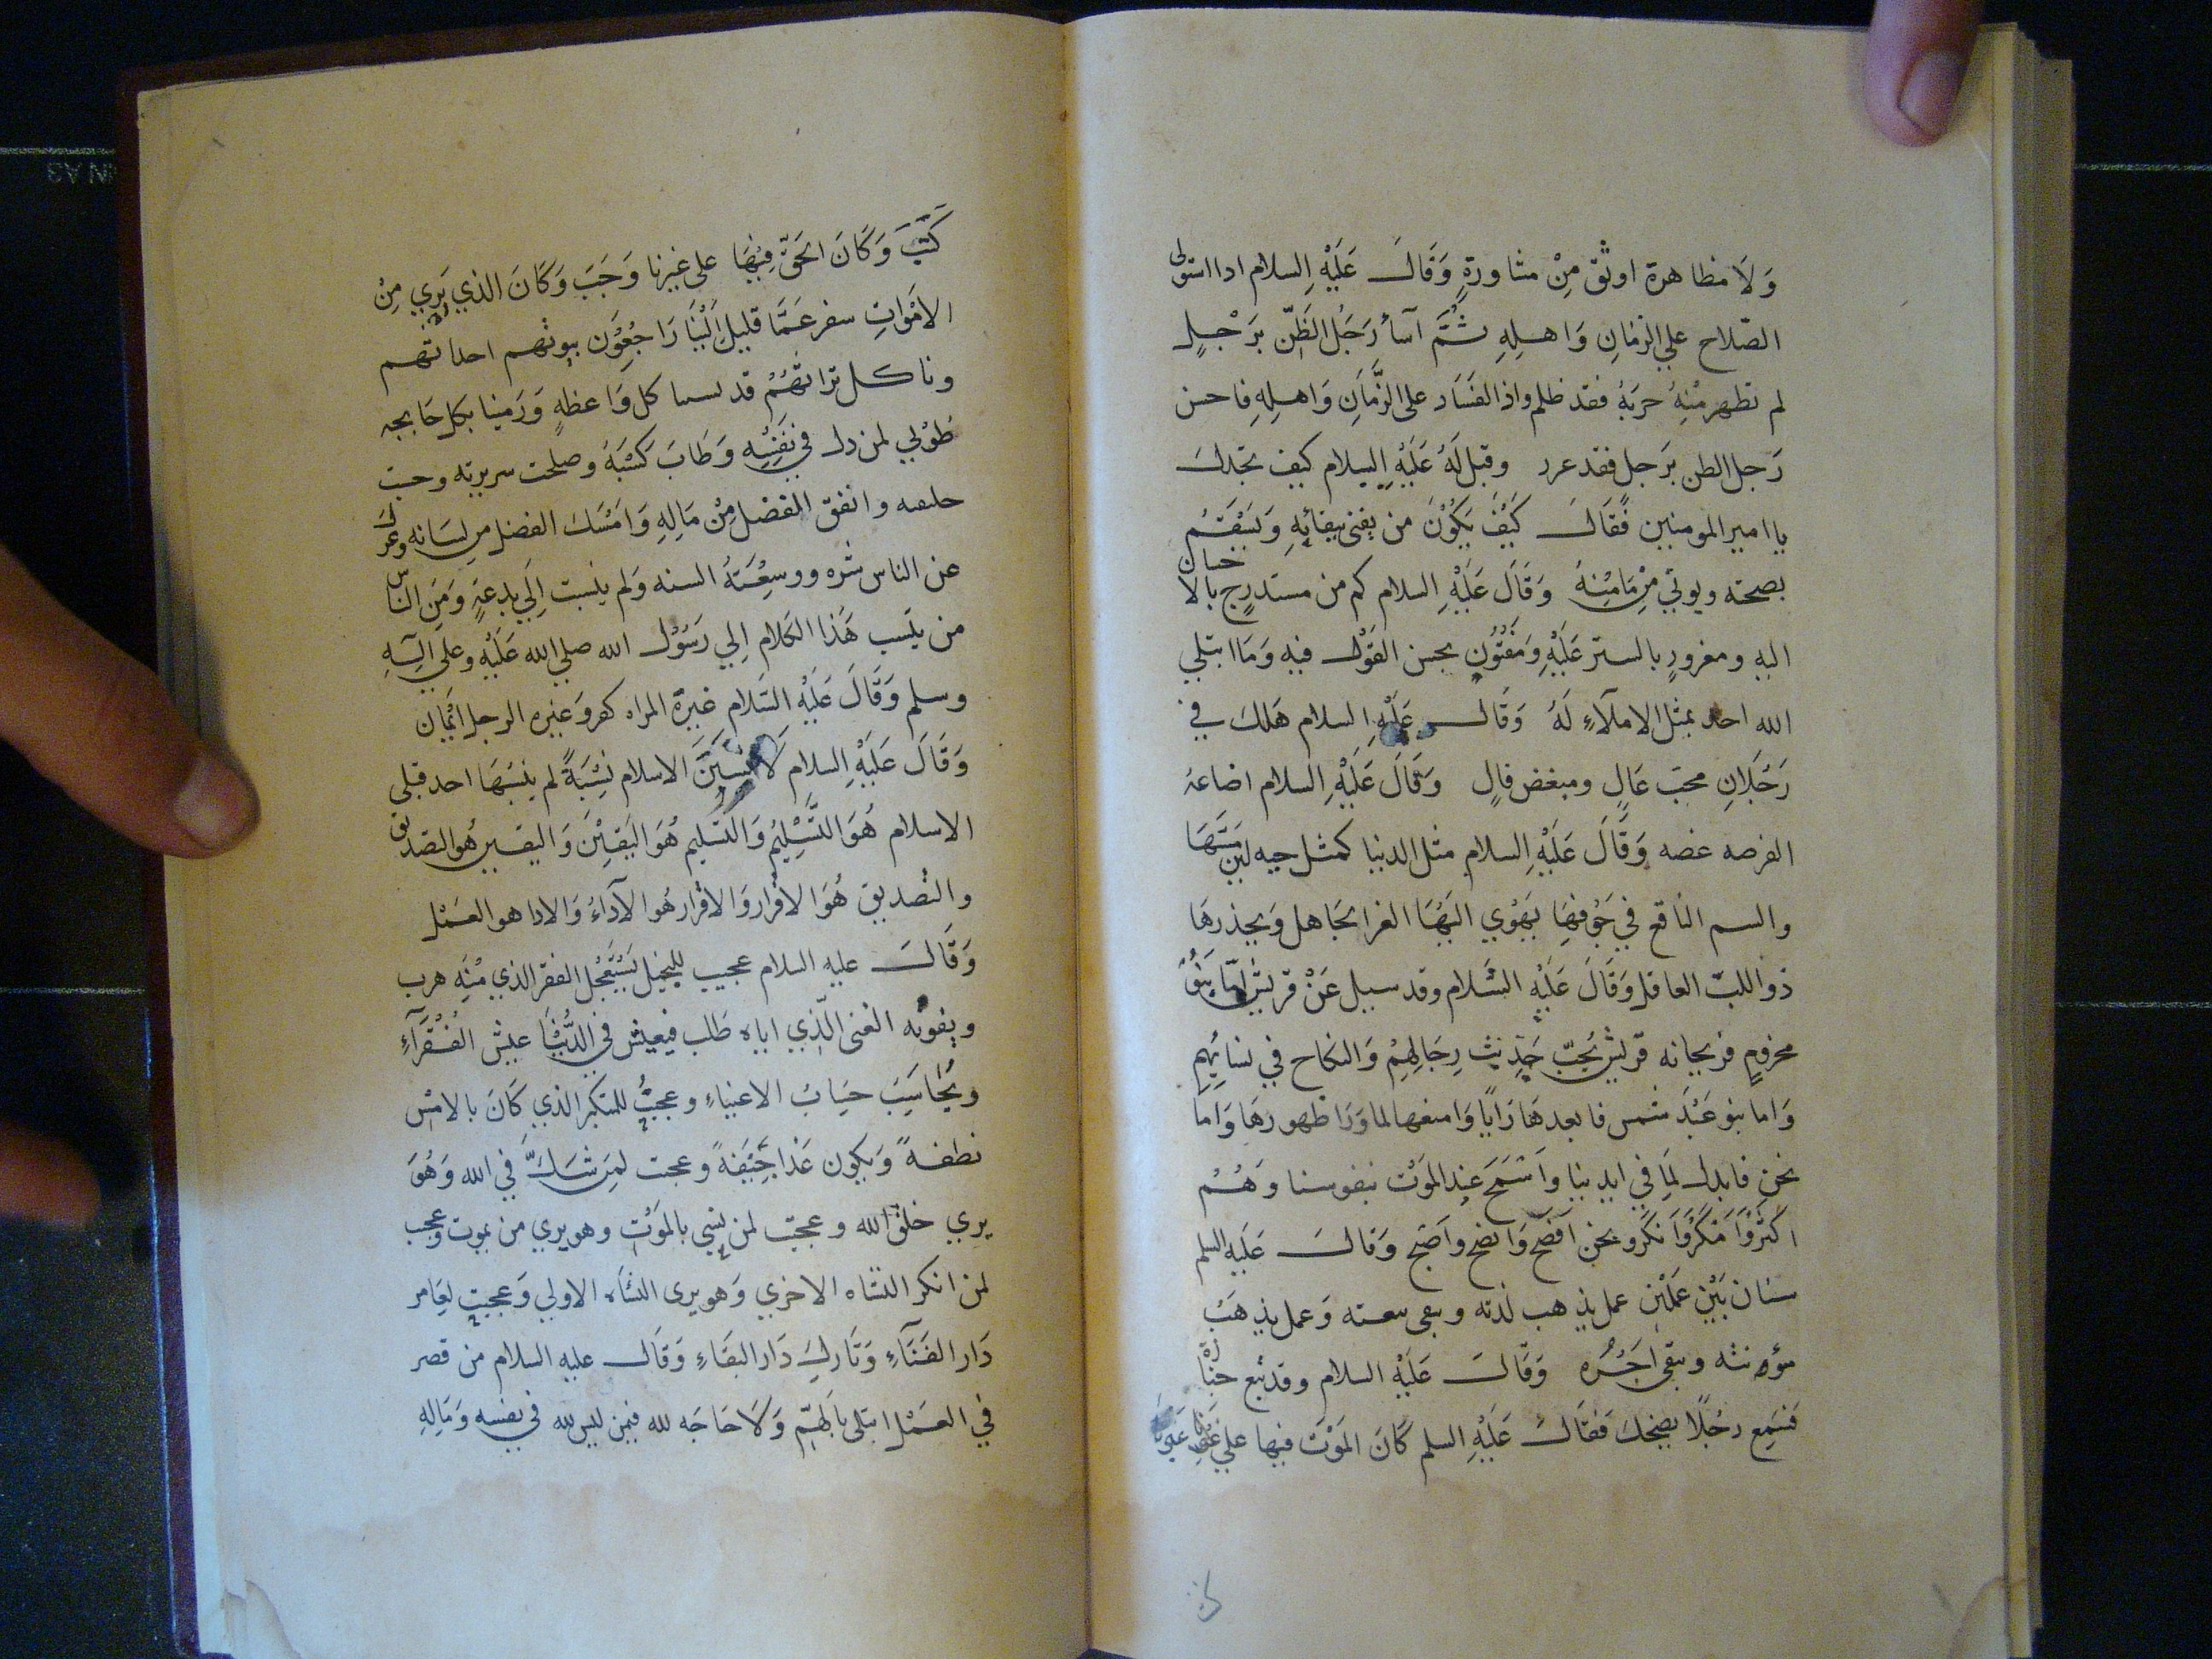 وَلَا مظاهرة اوثق مِنْ مشاورةٍ وَقَالَ عَلَيْهِ السلام اذا استولى
الصّلاح علي الزمَانِ وَاهلِهِ ثُمَّ آسأ رَجُل الظَنّ بَرَجْلٍ
لم تظهر مْنِهُ خزيَةُ فقد ظلم واذا الفَسَاد على الزَّمَانِ وَاهلِهِ فاحسن
رَجل الظن برَجل فقد غرر وقيل لَهُ عَلَيْهِ السلام كيف تجدك
يا امير المومنين فَقَالَ كَيْفَ يَكُوْنَ من يفنى ببقائِهِ وَيَسْقَمُ
بصحته ويوتي مِنْ مَامْنِهُ وَقَالَ عَلَيْهِ السلام كم من مستدرِج بالاحسان
اليه ومغرورٍ بالستر عَلَيْهِ وَمَفْتُوْنٍ بحسن القَوْل فيه وَمَا ابتلي
الله احد بمثل الاملآءِ لَهُ وَقَالَ عَلَيْهِ السلام هَلكَ في
رَجُلَانِ محبّ غَالٍ ومبغض قالٍ وَقَالَ عَلَيْهِ السلام اضاعهُ
الفرصه غصه وَقَالَ عَلَيْهِ السلام مثل الدنيا كمثل حيه لين مَسَّهَا
والسم النَاقع في جَوْفهَا يَهَوْي اليَهَا الغر الجَاهل وَيحذرهَا
ذو اللبّ العاقل وَقَالَ عَلَيْهِ السَّلام وقد سيل عَنْ قريش امّا بَنُوْ
مخزومٍ فريحانه قريش نُحبّ حَدِيْث رِجَالِهِمْ وَالنكاح في نسائِهِمِ
وَاما بنو عَبْدَ شمس فابعدهَا رَايًا وَامنعها لما وَرَا ظهورهَا وَاما
نحن فابذل لِمَا في ايدينا وَاَسْمَحَ عِند الموَت بنفوسنا وَهُمْ
اكثرُ وَاَمْكَرُ وَاَنكَرُ ونحن افصَح وَانصح وَاَصْبح وَقالَ عَلَيه السلم
ستان بَيْن عَمَلَيْن عمل يذهب لذته وبقى سعته وَعمل يذهَبُ
مؤنته ويبقى اَجْرُه وَقَالَ عَلَيْهِ السلام وقد تبع جنازة
فَسَمِع رجُلًا يضحك فَقَالَ عَلَيْهِ السلم كَانَ الموْتَ فيها علي غَيْرِنَا
كُتِبَ وَكَانَ الحَقّ فِيْهَا على غيرنا وَجَبَ وَكَانَ الذي نَري مِنْ
الامْوَاتِ سفر عَمَّا قليل اِلَيْنَا رَاجِعُوْن نبوئهم اجداثهم
وناكل تراثَهُمْ قد نسينا كل وَاعظهٍ وَرَمينا بكل جَايحه
طوْبي لمن ذل في نَفْسِه وَطَابَ كَسْبَهُ وصلحت سريرته وحسنت
خليقته وانفق الفضل مِنْ مَالِهِ وَامْسَكَ الفضل مِن لسَانه وعزل
عن الناس شره ووسِعْتهُ السنه وَلم ينسبت اِلَي بدعَةٍ وَمَن النَاس
من ينسب هَذا الكلام اِلي رَسُوْل الله صلي الله عَلَيْهِ وعلي اَلِهِ
وسلم وَقَالَ عَلَيْهِ السَّلام غيرة المراه كفر وَغيره الرجل ايمَان
وَقَالَ عَلَيْهِ السلام لَانْسِبَنَّ الاسلام نِسْبَةً لم ينسُبهَا احد قبلي
الاسلام هُوَ التَّسْلِيْمُ وَالتَسْليم هُوَ اليَقِيْنَ وَاليقين هُو التصديق
والتصديق هُوَ الاقْرار وَالاقْرار هُوا الآدَاءُ وَالادا هو العَمَل
وَقَالَ عليه السلام عجبت للبخيل يَسْتَعْجُل الفقر الذي مْنهِ هرب
ويفوته الغنى الَّذِي اياه طَلب فيعيش في الدُّنْيَا عيش الفُقَرَآءِ
وَيُحْاسَبَ حِسَابُ الاغنياءِ وعجبتُ للمتكبر الذي كَانَ بالامْس
نطفةً وَيكون غَدَا جِيْفَةً وعجبت لمِن شَكَّ في الله وَهُوَ
يري خلقْ الله وعجبت لمن نسي بالموَت وهو يري من يموت وعجب
لمن انكر النشاه الاخري وَهو يرى النشاه الاولي وَعجبت لِعَامر
دَار الفَنَآءِ وَتَاركِ دَار البقَاءِ وَقَال عليه السلام من قصر
في العمَل ابتلى بالهَمّ وَلَا حَاجَه لله فيمن ليس لله في نفسه وَمَالِهِ